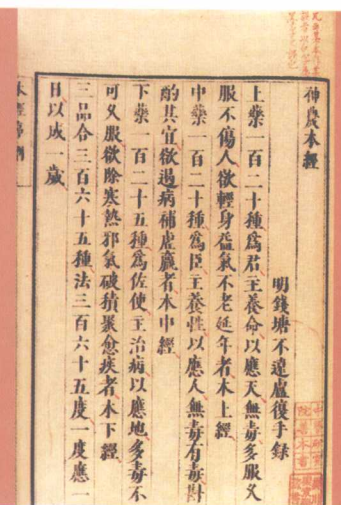 神農本經
明錢塘不遠盧復手録
上藥一百二十種爲君主養命以應天無毒多服久
服不傷人欲輕身益氣不老延年者本上經
中藥一百二十種爲臣主養性以應人無毒有毒斟
酌其宜欲遏病補虛羸者本中經
下藥一百二十五種爲佐使主治病以應地多毒不
可久服欲除寒熱邪氣破積聚愈疾者本下經
三品合三百六十五種法三百六十五度一度應一
日以成一歲